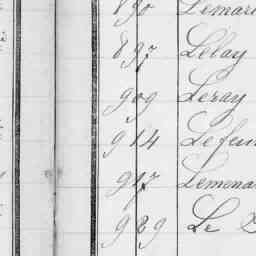 890 Lemari
897 Lelay
909 Leray
914 Lefeu
917 Lemena
989 Le